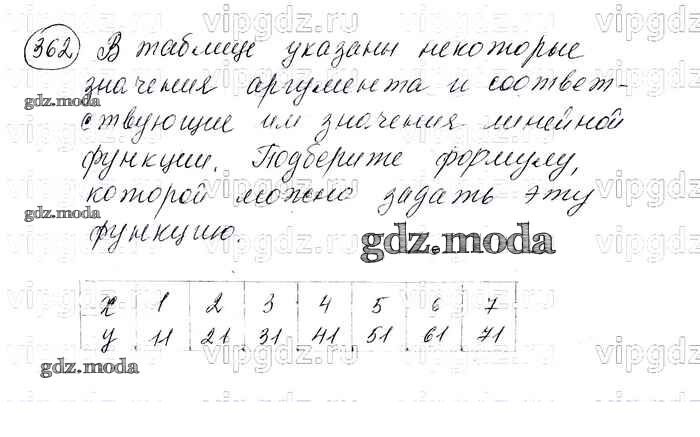 362 В таблице указаны некоторые
значения аргумента и соответ-
ствующие им значения линейной
функции. Подберите формулу,
которой можно задать эту
функцию.
x 1 2 3 4 5 6 7
y 11 21 31 41 51 61 71
gdz.moda
gdz.moda
gdz.moda
gdz.moda
vipgdz.ru